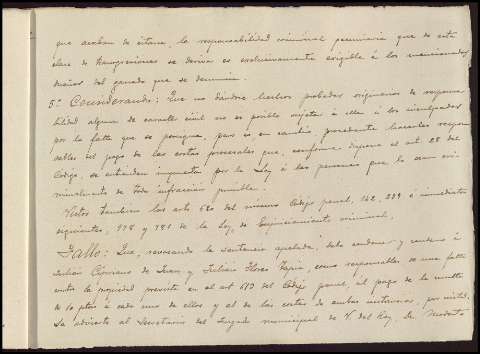 que acaban de citarse, la responsabilidad criminal pecuniaria que de esta
clase de transgresiones se deriva es exclusivamente exigible á los mencionados
dueños del ganado que se denuncia.
5º Considerando: Que no dándose hechos probados originarios de responsa-
bilidad alguna de caracter civil no es posible sujetar á ella á los inculpados
por la falta que se persigue, pero es en cambio, procedente hacerles respon-
sables del pago de las costas procesales que, conforme dispone el art 28 del
Código, se entienden impuestas por la Ley á las personas que lo sean cri-
minalmente de toda infracción punible.
Vistos tambien los arts 620 del mismo Código penal, 142, 239 é inmediatos
siguientes, 978 y de la Ley de Enjuiciamiento criminal,
Fallo: Que, revocando la sentencia apelada, debo condenar y condeno á
Julian Cipriano de Juan y Julian Flores Tapia, como responsables de una falta
contra la propiedad prevista en el art del Código penal, al pago de la multa
de 10 ptas á cada uno de ellos y al de las costas de ambas instancias, por mitad.
Se advierte al Secretario del Juzgado municipal de V. del Rey, Dn Modesto